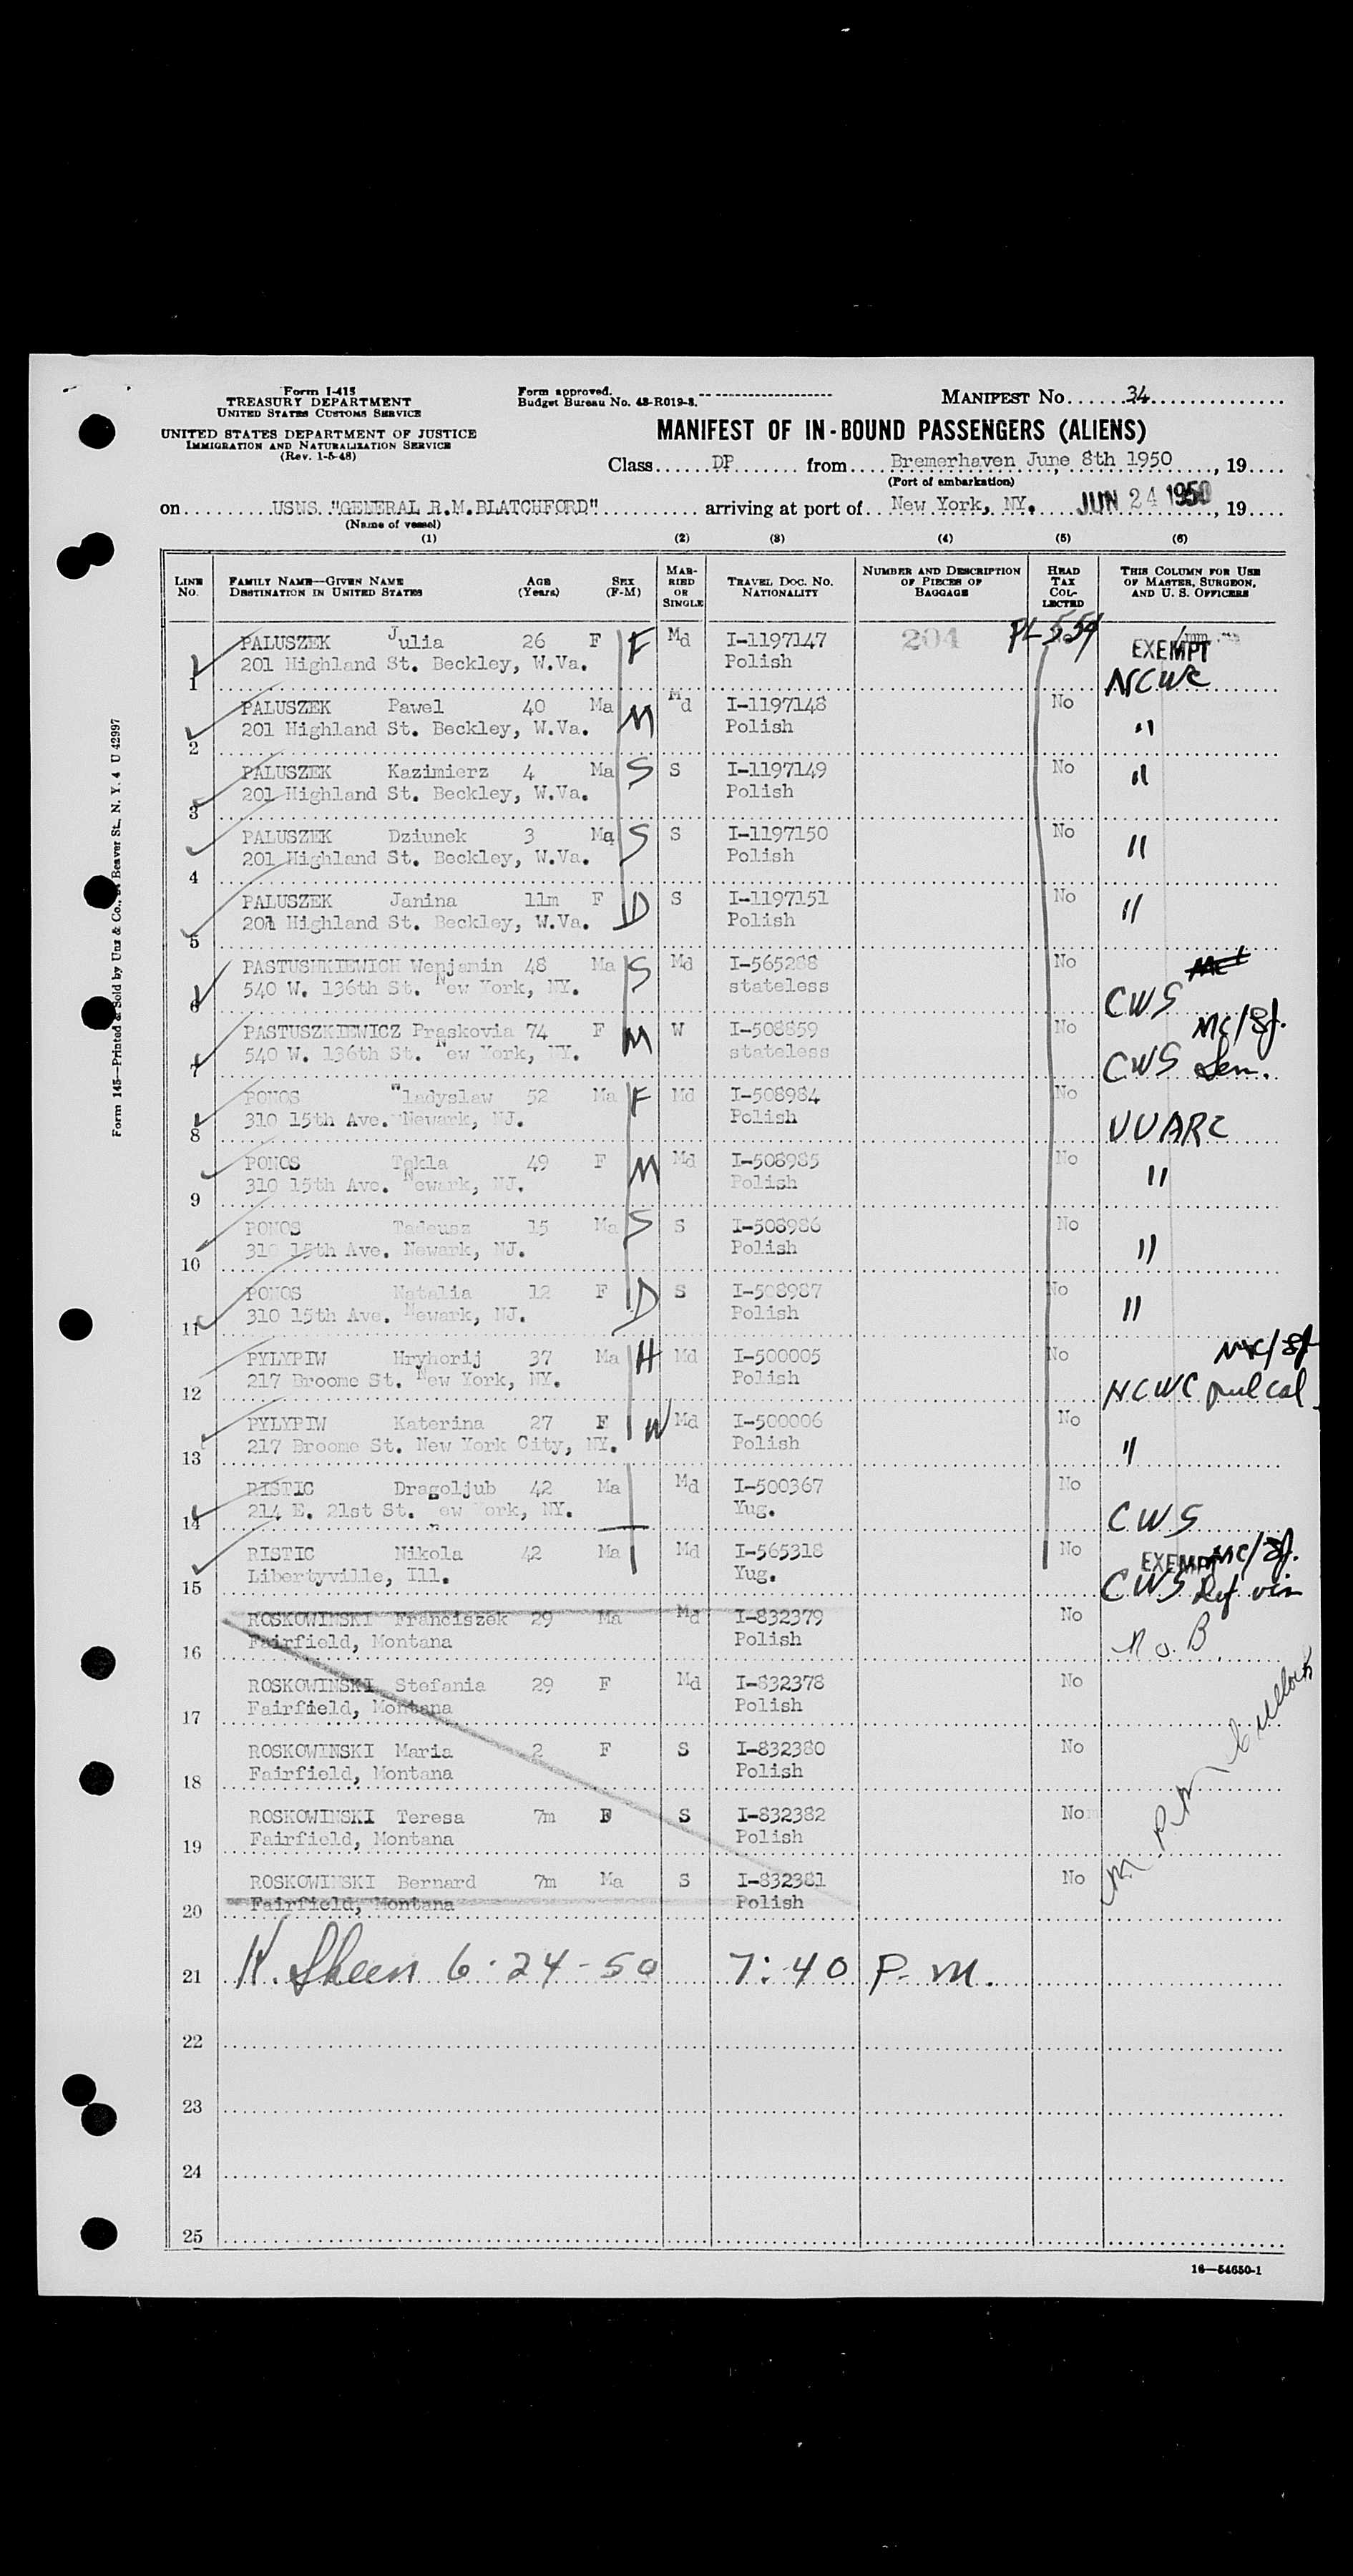 Form I-415
TREASURY DEPARTMENT
UNITED STATES CUSTOMS SERVICE
UNITED STATES DEPARTMENT OF JUSTICE
IMMIGRATION AND NATURALIZATION SERVICE
(Rev. 1-5-48)
Form approved.
Budget Bureau No. 43-R019-3.
MANIFEST No. 34
MANIFEST OF IN-BOUND PASSENGERS (ALIENS)
Class DP from Bremerhaven June 8th 1950, 19
(Port of embarkation)
on USNS "GENERAL R.M.BLATCHFORD" arriving at port of New York, NY. JUN 24 1950, 19
(Name of vessel)
(1) (2) (3) (4) (5) (6)
LINE No. FAMILY NAME—GIVEN NAME DESTINATION IN UNITED STATES AGE (Years) SEX (F-M) MARRIED OR SINGLE TRAVEL DOC. NO. NATIONALITY NUMBER AND DESCRIPTION OF PIECES OF BAGGAGE HEAD TAX COLLECTED THIS COLUMN FOR USE OF MASTER, SURGEON, AND U. S. OFFICERS
PALUSZEK Julia 26 F F Md I-1197147 204 PL 554 EXEMPT
1 201 Highland St. Beckley, W.Va. Polish NCWC
PALUSZEK Pawel 40 Ma M Md I-1197148 No
2 201 Highland St. Beckley, W.Va. Polish "
PALUSZEK Kazimierz 4 Ma S S I-1197149 No
3 201 Highland St. Beckley, W.Va. Polish "
PALUSZEK Dziunek 3 Ma S S I-1197150 No
4 201 Highland St. Beckley, W.Va. Polish "
PALUSZEK Janina 11m F D S I-1197151 No
5 201 Highland St. Beckley, W.Va. Polish "
PASTUSHKIEWICH Wenjamin 48 Ma S Md I-565288 No
6 540 W. 136th St. New York, NY. stateless CWS
PASTUSZKIEWICZ Praskovia 74 F M W I-508859 No MC/Sf.
7 540 W. 136th St. New York, NY. stateless CWS Sen.
PONOS Wladyslaw 52 Ma F Md I-508984 No
8 310 15th Ave. Newark, NJ. Polish UUARC
PONOS Tekla 49 F M Md I-508985 No
9 310 15th Ave. Newark, NJ. Polish "
PONOS Tadeusz 15 Ma S S I-508986 No
10 310 15th Ave. Newark, NJ. Polish "
PONOS Natalia 12 F D S I-508987 No
11 310 15th Ave. Newark, NJ. Polish "
PYLYPIW Hryhorij 37 Ma H Md I-500005 No MC/Sf
12 217 Broome St. New York, NY. Polish NCWC pul cal
PYLYPIW Katerina 27 F W Md I-500006 No
13 217 Broome St. New York City, NY. Polish "
RISTIC Dragoljub 42 Ma Md I-500367 No
14 214 E. 21st St. ew York, NY. Yug. CWS
RISTIC Nikola 42 Ma Md I-565318 No EXEMPT MC/Sf.
15 Libertyville, Ill. Yug. CWS Def vis
ROSKOWINSKI Franciszek 29 Ma Md I-832379 No
16 Fairfield, Montana Polish N.O.B.
ROSKOWINSKI Stefania 29 F Md I-832378 No
17 Fairfield, Montana Polish
ROSKOWINSKI Maria 2 F S I-832380 No
18 Fairfield, Montana Polish
ROSKOWINSKI Teresa 7m F S I-832382 No
19 Fairfield, Montana Polish
ROSKOWINSKI Bernard 7m Ma S I-832381 No
20 Fairfield, Montana Polish
21 K. Sheen 6-24-50 7:40 P.M.
22
23
24
25
16—54650-1
Form 145—Printed & Sold by Unz & Co., Beaver St., N. Y. 4 U 42997